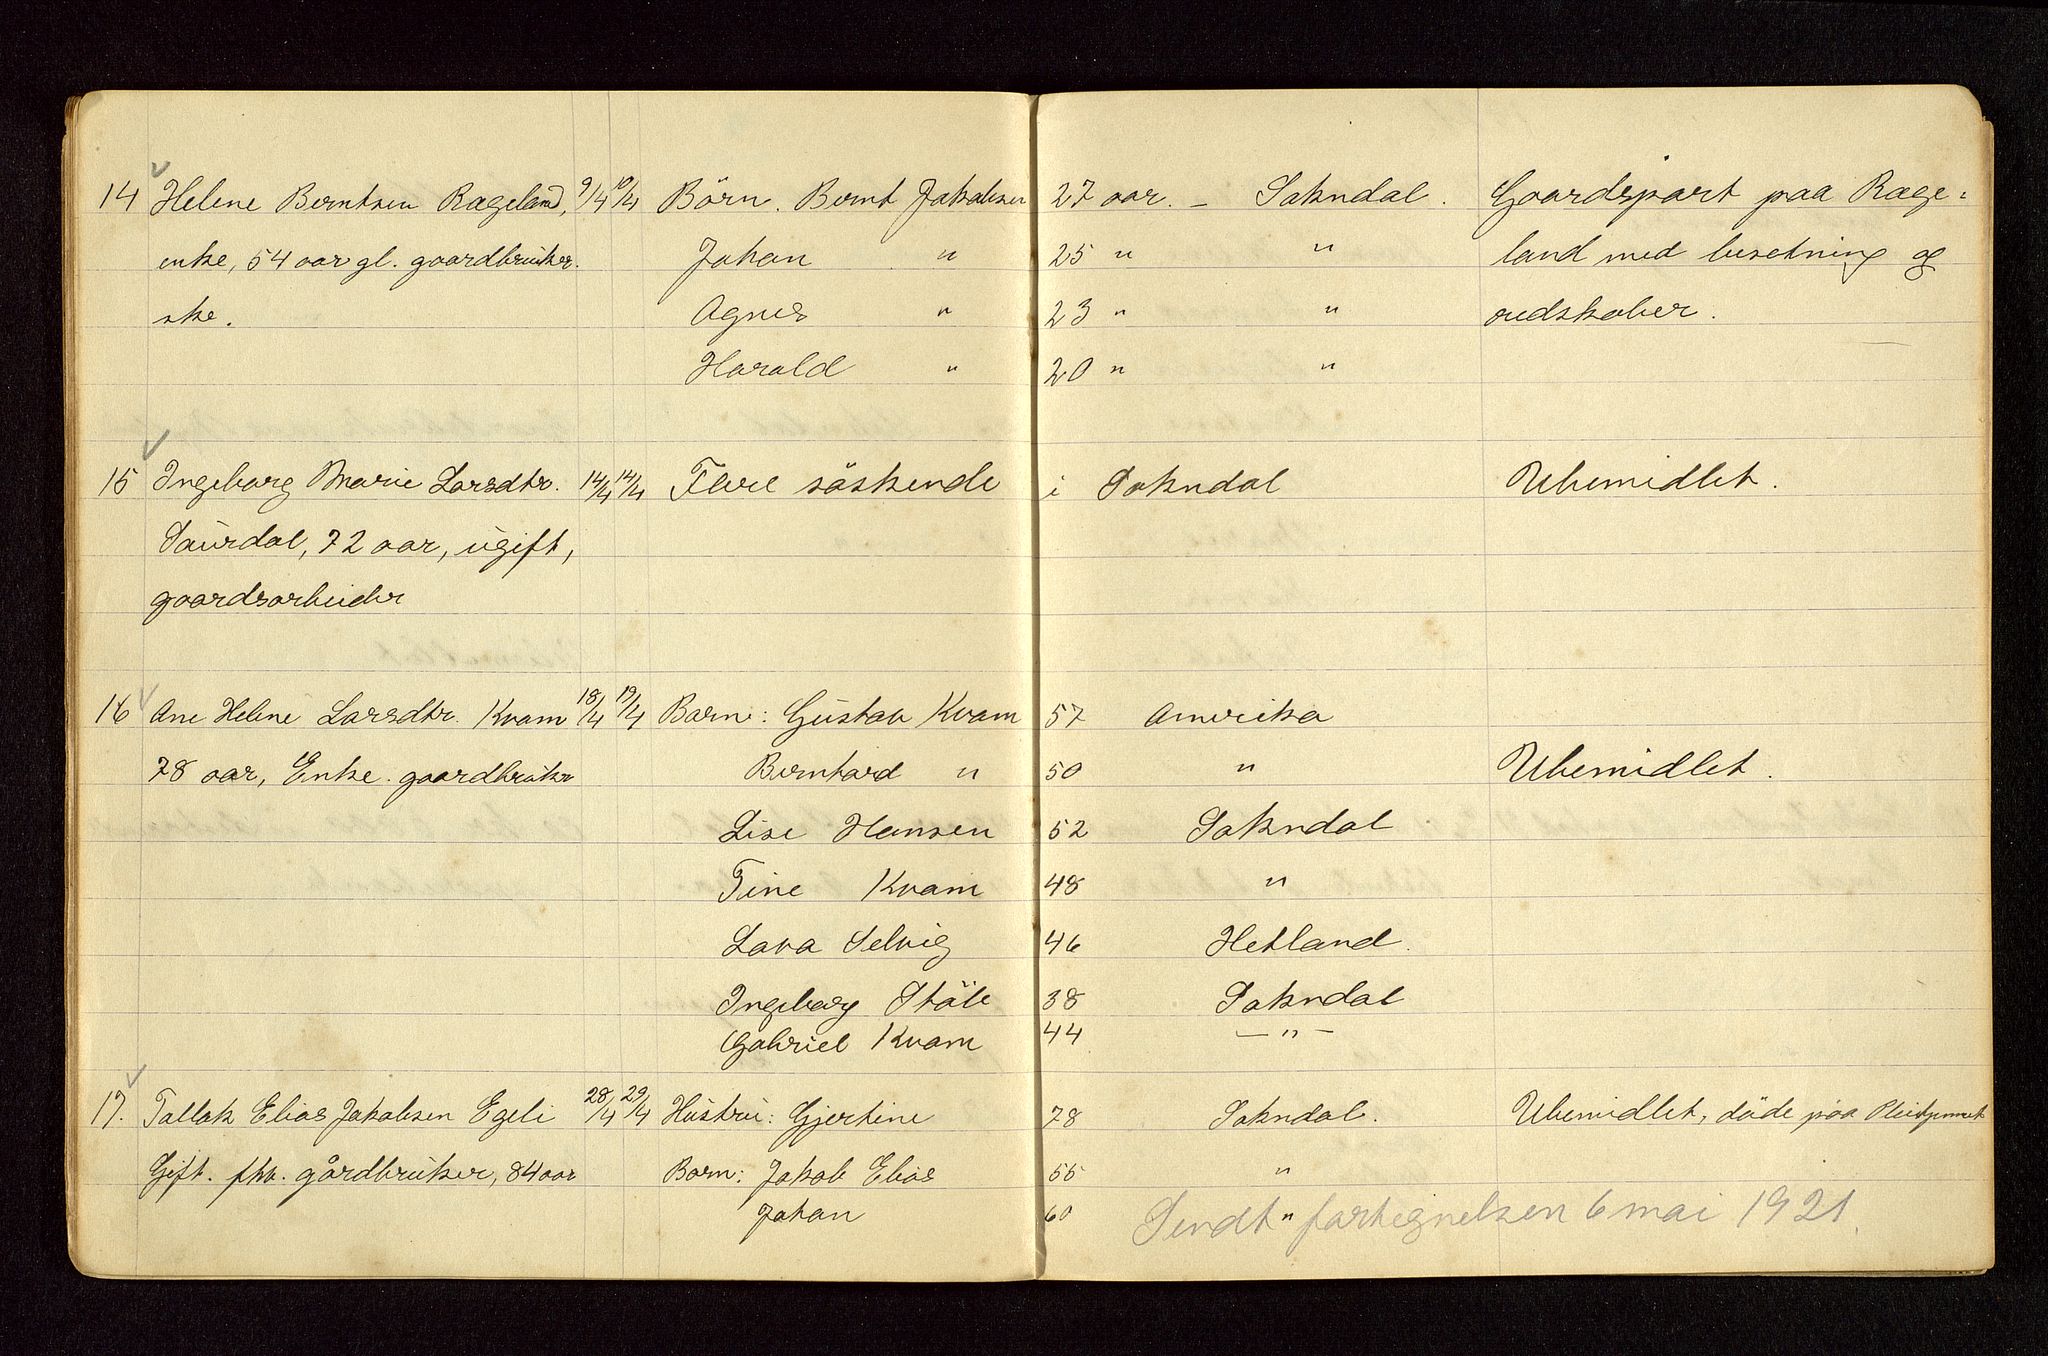 14 Helene Berntsen Rægeland, 9/4 10/4 Börn. Bernt Jakobsen 27 aar. – Sokndal. Gaardspart paa Ræge=
enke, 54 aar gl. gaardbruker. Johan " 25 " " land med besetning og
ske. Agnes " 23 " " redskaber.
Harald " 20 " "
15 Ingeborg Marie Larsdtr. 14/4 14/4 Flere söskende i Sokndal Ubemidlet.
Saurdal, 72 aar, ugift,
gaardsarbeider
16 Ane Helene Larsdtr. Kvam 18/4 19/4 Barn: Gustav Kvam 57 Amerika
78 aar, Enke. gaardbruker Berntard " 50 " Ubemidlet.
Lise Hansen 52 Sokndal
Tine Kvam 48 "
Lava Selvig 46 Hetland.
Ingeborg Stöle 38 Sokndal
Gabriel Kvam 44 – " –
17. Tallak Elias Jakobsen Egeli 28/4 29/4 Hustru: Gjertine 78 Sokndal. Ubemidlet, döde paa
Gift. fhv. gårdbruker, 84 aar Barn: Jakob Elias 55 "
Johan 60 " Sendt fortegnelsen 6 mai 1921.